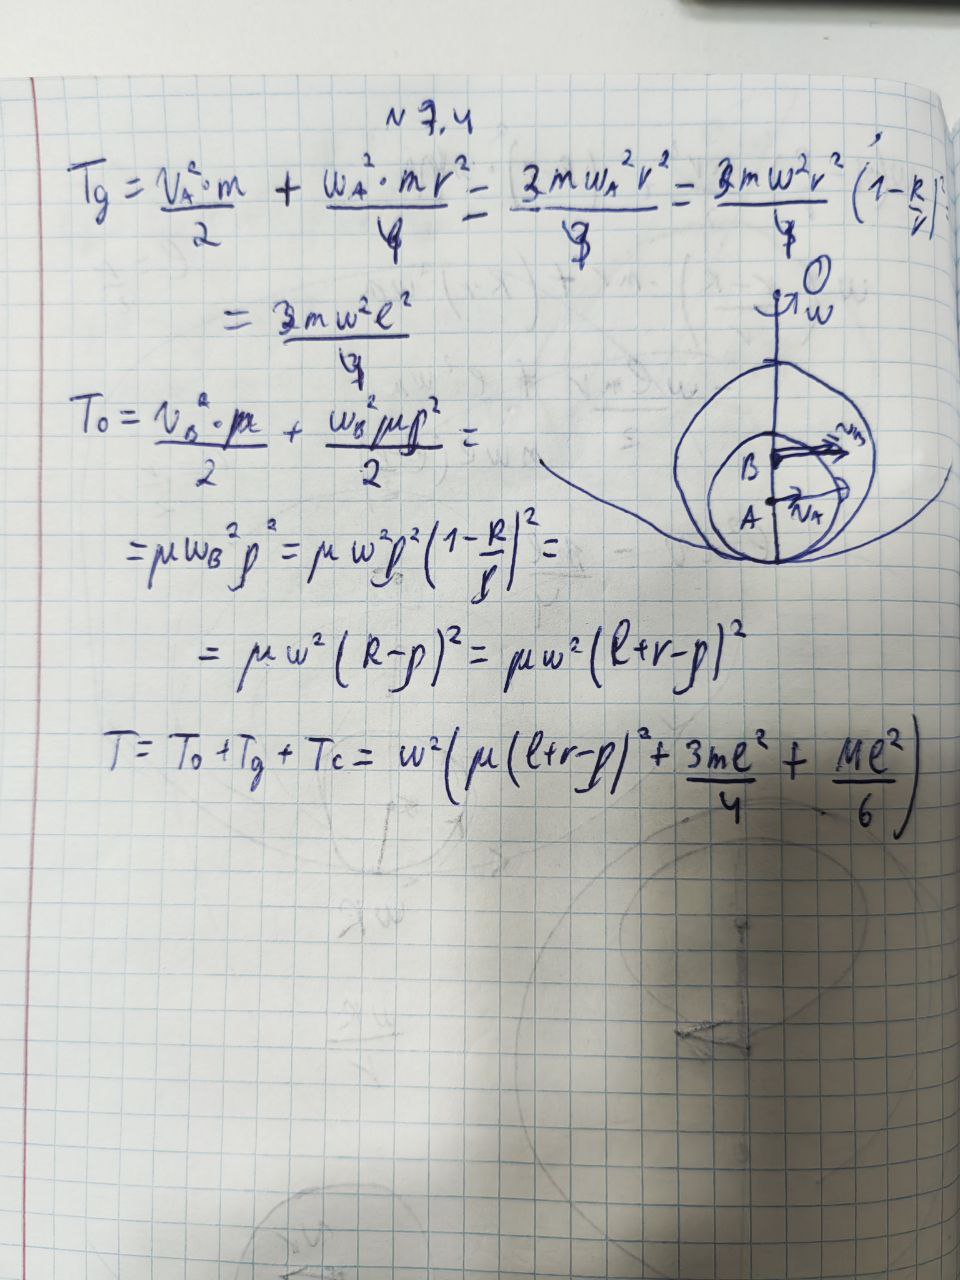 N 7.4
Tg = v_A²·m/2 + ω_A²·mr²/4 = 3mω_A²r²/4 = 3mω²r²/4 (1-R/r)² =
= 3mω²l²/4
O
ω
T₀ = v_B²·μ/2 + ω_B²μρ²/2 =
v_B
B
A
v_A
= μω_B²ρ² = μω²ρ²(1-R/ρ)² =
= μω²(R-ρ)² = μω²(l+r-ρ)²
T = T₀ + Tg + Tc = ω²(μ(l+r-ρ)² + 3ml²/4 + Ml²/6)